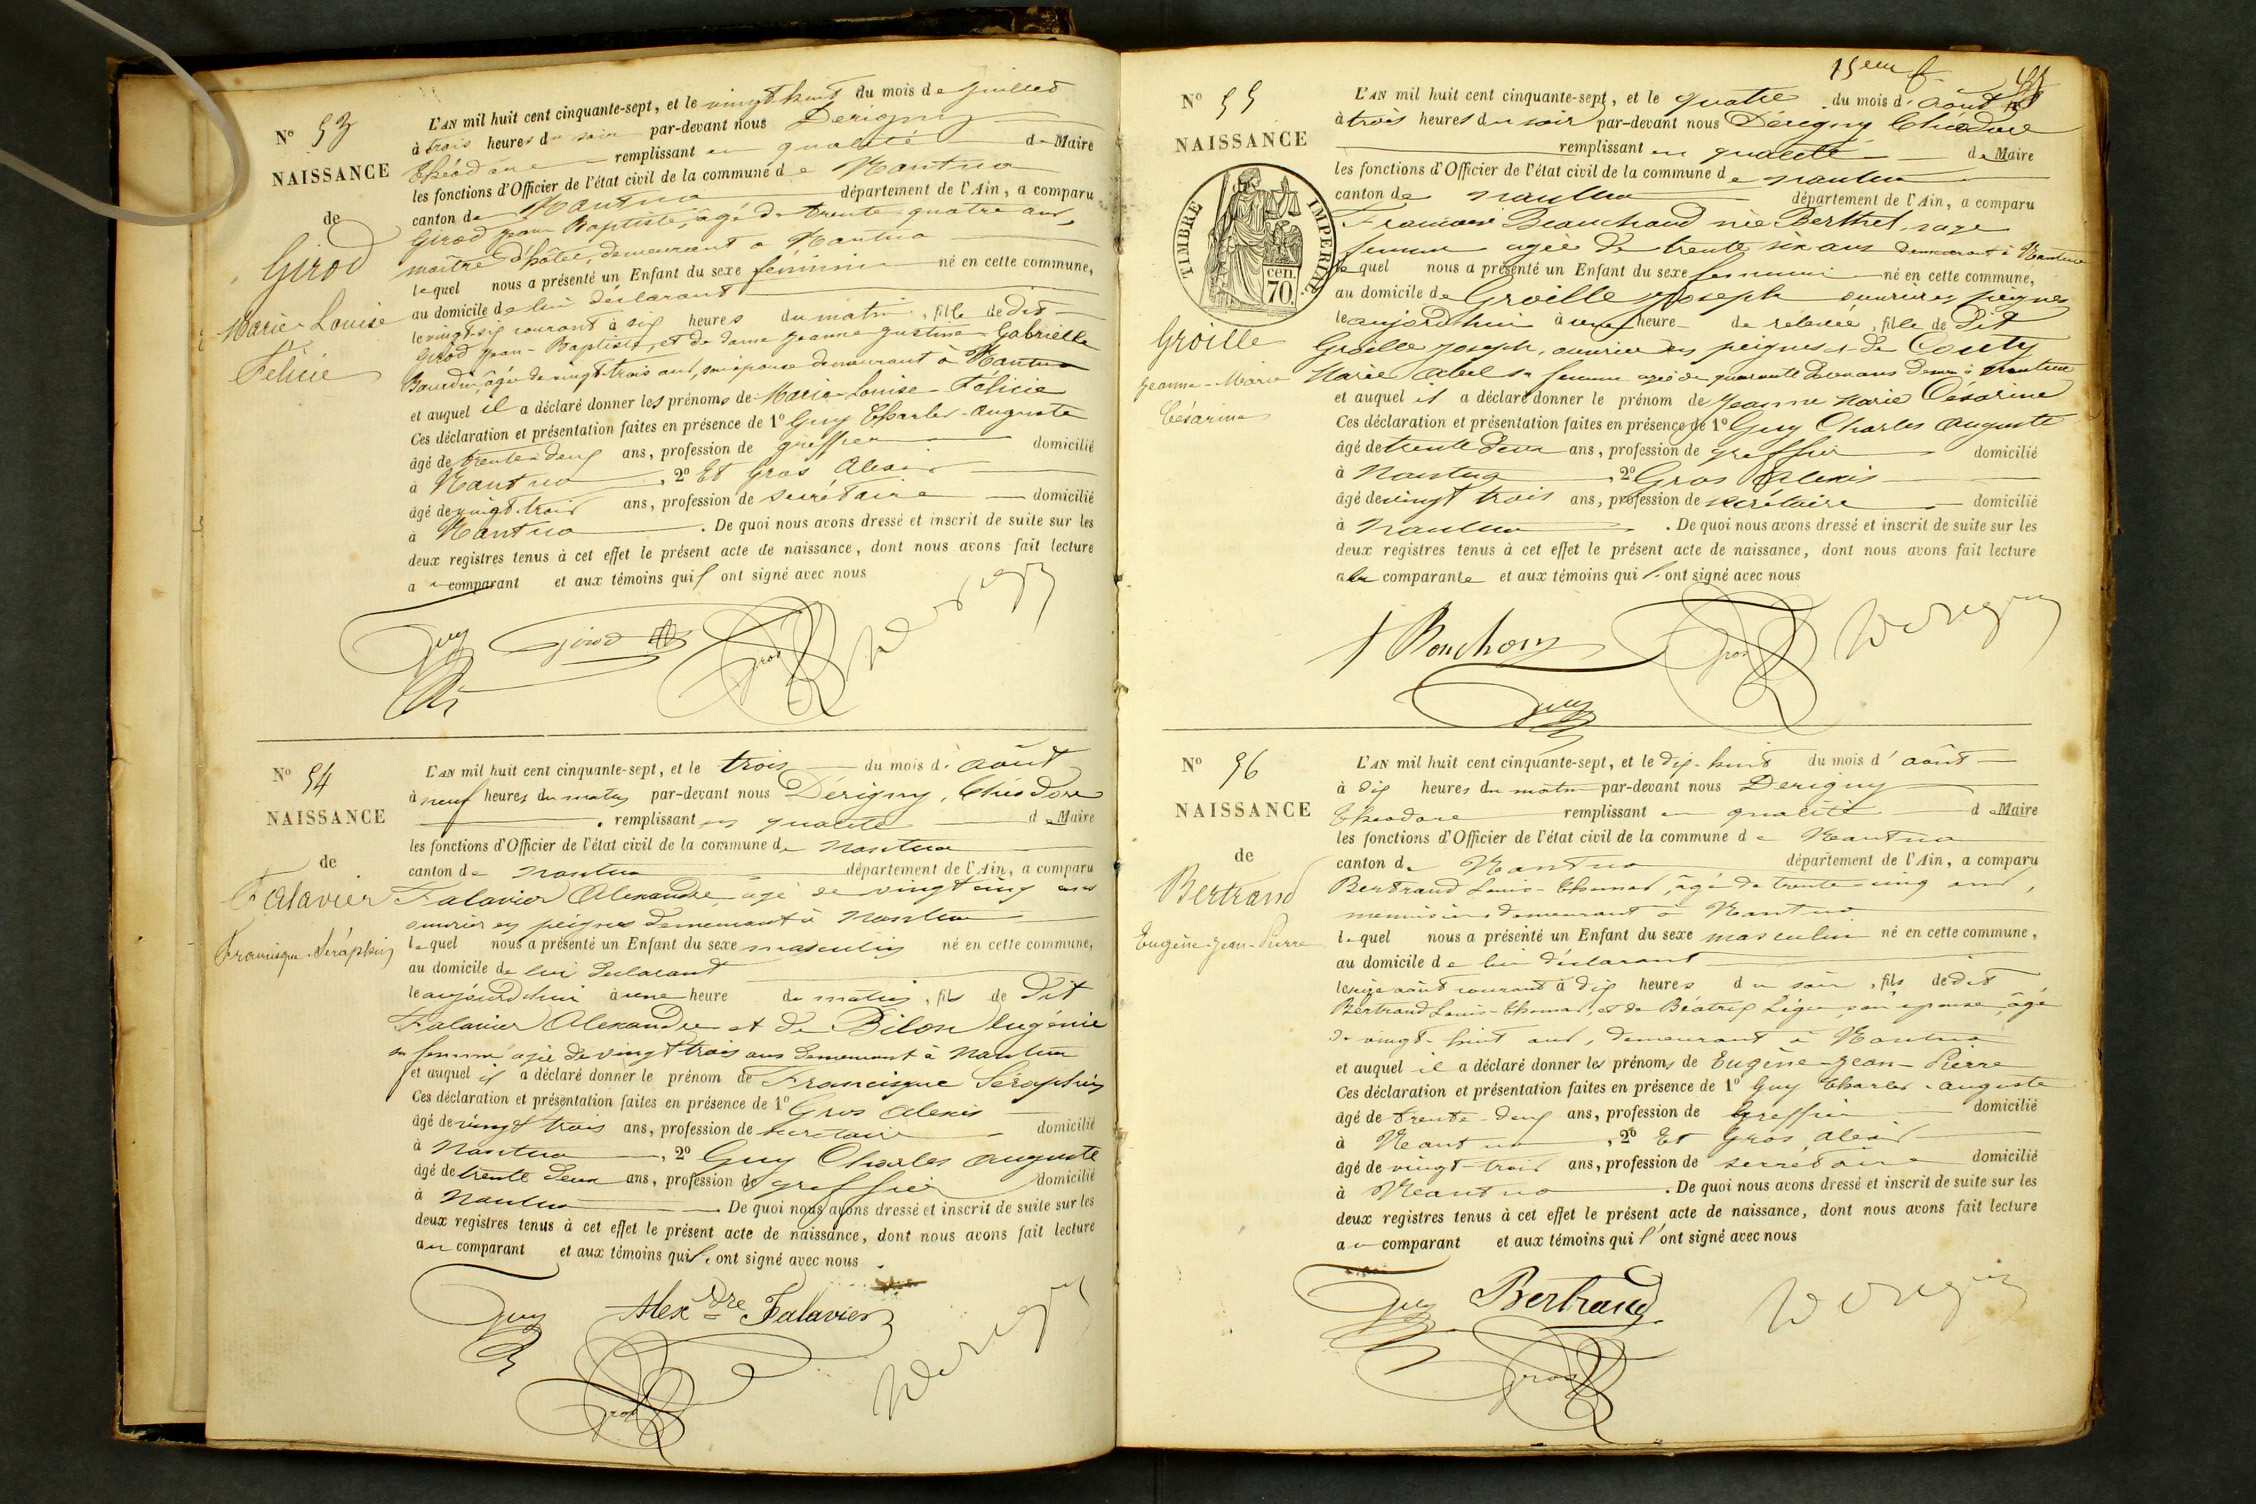 N° 53
NAISSANCE
de
Girod
Marie-Louise
Félicie
L'AN mil huit cent cinquante-sept, et le vingt huit du mois de Juillet
à trois heures du soir par-devant nous Dérigny
Théodore remplissant en qualité de Maire
les fonctions d'Officier de l'état civil de la commune de Nantua
canton de Nantua département de l'Ain, a comparu
Girod Jean Baptiste, âgé de trente quatre ans,
maître d'hôtel, demeurant à Nantua
lequel nous a présenté un Enfant du sexe féminin né en cette commune,
au domicile de lui déclarant
le vingt-six courant à six heures du matin, fille dedit
Girod Jean-Baptiste, et de dame Jeanne-Justine-Gabrielle
âgée de vingt-trois ans, son épouse demeurant à Nantua
et auquel il a déclaré donner les prénoms de Marie-Louise-Félicie
Ces déclaration et présentation faites en présence de 1° Guy Charles-Auguste
âgé de trente-deux ans, profession de greffier domicilié
à Nantua, 2° Et Gros Alexis
âgé de vingt-trois ans, profession de secrétaire domicilié
à Nantua. De quoi nous avons dressé et inscrit de suite sur les
deux registres tenus à cet effet le présent acte de naissance, dont nous avons fait lecture
au comparant et aux témoins qui ont signé avec nous
Guy Girod Gros Derigny
N° 54
NAISSANCE
de
Falavier
Francisque Séraphin
L'AN mil huit cent cinquante-sept, et le trois du mois d'Août
à neuf heures du matin par-devant nous Dérigny, Théodore
remplissant en qualité de Maire
les fonctions d'Officier de l'état civil de la commune de Nantua
canton de Nantua département de l'Ain, a comparu
Falavier Alexandre âgé de vingt cinq ans
ouvrier en peignes demeurant à Nantua
lequel nous a présenté un Enfant du sexe masculin né en cette commune,
au domicile de lui déclarant
le aujourd'hui à une heure du matin, fils de dit
Falavier Alexandre et de Bilon Eugénie
sa femme âgée de vingt trois ans demeurant à Nantua
et auquel il a déclaré donner le prénom de Francisque Séraphin
Ces déclaration et présentation faites en présence de 1° Gros Alexis
âgé de vingt trois ans, profession de secrétaire domicilié
à Nantua, 2° Guy Charles Auguste
âgé de trente deux ans, profession de greffier domicilié
à Nantua. De quoi nous avons dressé et inscrit de suite sur les
deux registres tenus à cet effet le présent acte de naissance, dont nous avons fait lecture
au comparant et aux témoins qui ont signé avec nous
Guy Alexdre Falavier Gros Derigny
15eme f.
N° 55
NAISSANCE
TIMBRE IMPERIAL
70. cen.
Groille
Jeanne-Marie
Césarine
L'AN mil huit cent cinquante-sept, et le quatre du mois d'Août
à trois heures du soir par-devant nous Dérigny Théodore
remplissant en qualité de Maire
les fonctions d'Officier de l'état civil de la commune de Nantua
canton de Nantua département de l'Ain, a comparu
née Berthet sage
femme agée de trente six ans demeurant à Nantua
lequel nous a présenté un Enfant du sexe feminin né en cette commune,
au domicile de Groille Joseph ouvrier en peignes
le aujourd'hui à une heure de relevée, fille de Dit
Groille Joseph, ouvrier en peignes et de Couty
Marie sa femme agée de quarante deux ans dem. à Nantua
et auquel il a déclaré donner le prénom de Jeanne Marie Césarine
Ces déclaration et présentation faites en présence de 1° Guy Charles Auguste
âgé de trente deux ans, profession de greffier domicilié
à Nantua, 2° Gros Alexis
âgé de vingt trois ans, profession de secrétaire domicilié
à Nantua. De quoi nous avons dressé et inscrit de suite sur les
deux registres tenus à cet effet le présent acte de naissance, dont nous avons fait lecture
a la comparante et aux témoins qui ont signé avec nous
Gros Derigny
Guy
N° 56
NAISSANCE
de
Bertrand
Eugène-Jean-Pierre
L'AN mil huit cent cinquante-sept, et le dix-huit du mois d'août
à dix heures du matin par-devant nous Derigny
Théodore remplissant en qualité de Maire
les fonctions d'Officier de l'état civil de la commune de Nantua
canton de Nantua département de l'Ain, a comparu
Bertrand Louis-Thomas, âgé de trente-cinq ans,
menuisier demeurant à Nantua
lequel nous a présenté un Enfant du sexe masculin né en cette commune,
au domicile de lui déclarant
le seize août courant à dix heures du soir, fils dedit
Bertrand Louis-Thomas, et de Béatrix son épouse, âgé
de vingt-huit ans, demeurant à Nantua
et auquel il a déclaré donner les prénoms de Eugène-Jean-Pierre
Ces déclaration et présentation faites en présence de 1° Guy Charles-Auguste
âgé de trente-deux ans, profession de Greffier domicilié
à Nantua, 2° Et Gros Alexis
âgé de vingt-trois ans, profession de secrétaire domicilié
à Nantua. De quoi nous avons dressé et inscrit de suite sur les
deux registres tenus à cet effet le présent acte de naissance, dont nous avons fait lecture
au comparant et aux témoins qui ont signé avec nous
Guy Bertrand Derigny
Gros